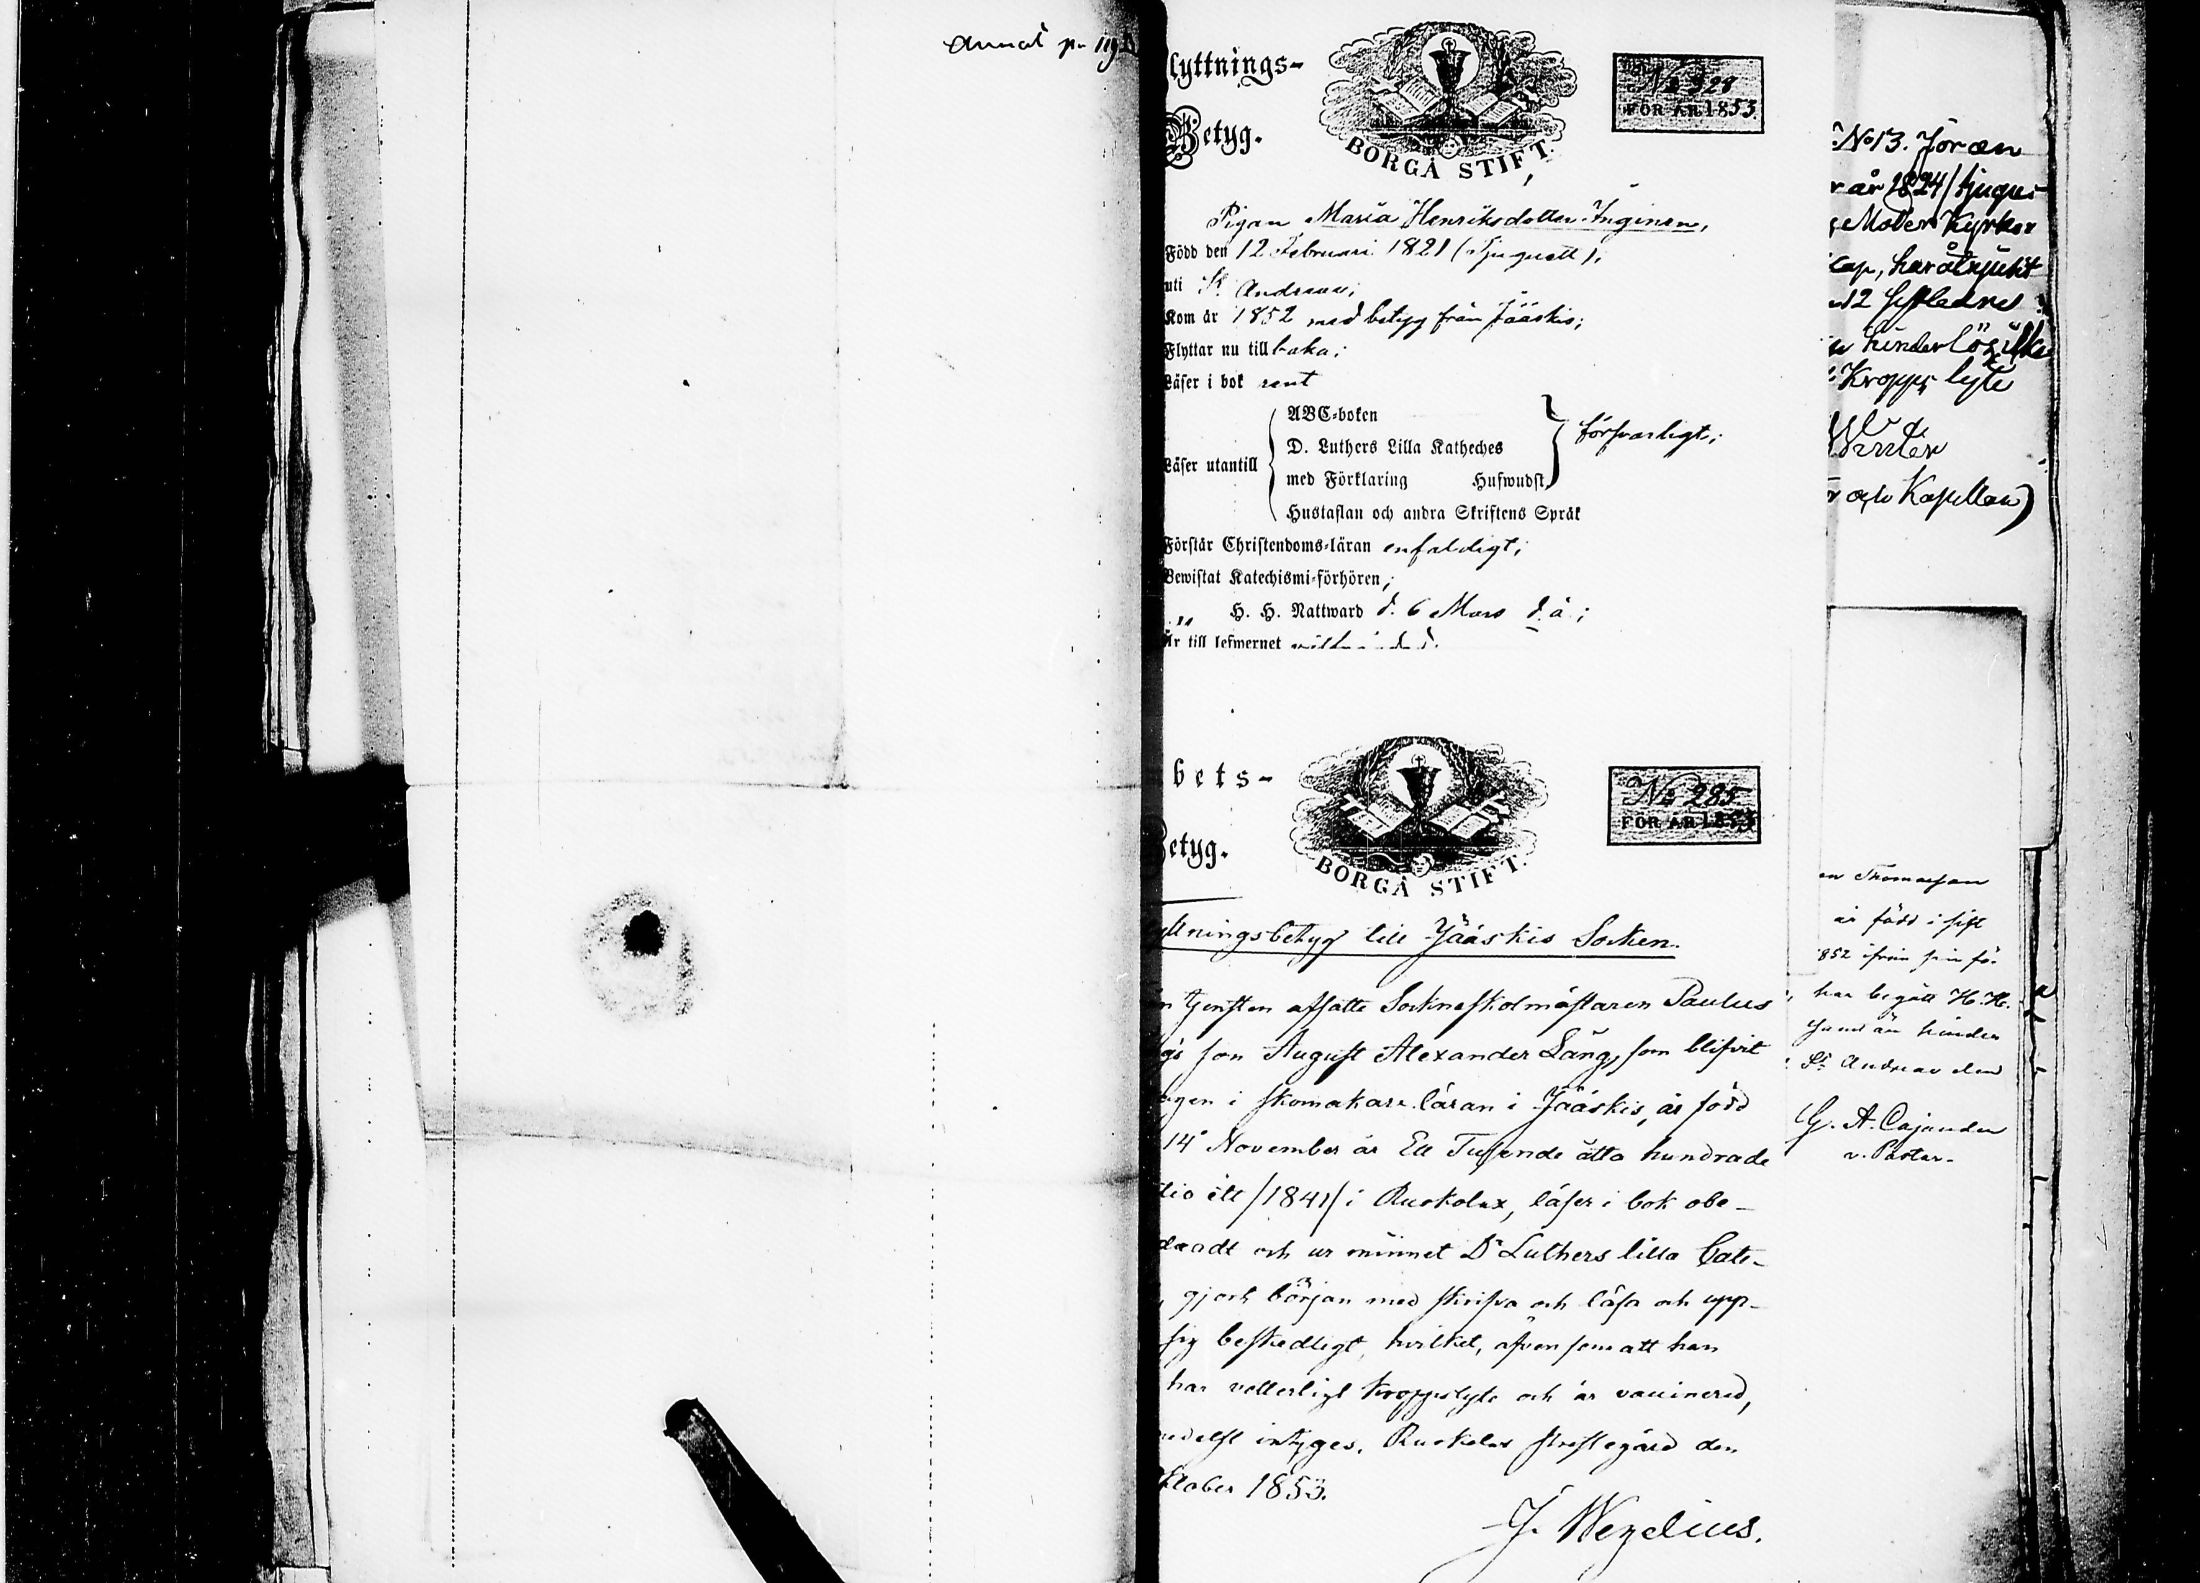 lyttnings-
Betyg.
BORGÅ STIFT.
No 328
FÖR ÅR 1853.
Pigan Maria Henriksdotter Inginen,
Född den 12 Februari 1821 (tjuguett);
uti St Andreae;
Kom år 1852 med betyg från Jääskis;
Flyttar nu tillbaka;
Läser i bok rent
ABC-boken
D. Luthers Lilla Katheches
försvarligt;
Läser utantill
med Förklaring Hufwudst.
Hustaflan och andra Skriftens Språk
Förstår Christendoms-läran enfaldigt;
Bewistat Katechismi-förhören;
„ H. H. Nattward d. 6 Mars d. å.;
Är till lefwernet
bets-
Betyg.
BORGÅ STIFT.
No 285
FÖR ÅR 1853
ttningsbetyg till Jääskis Socken.
n tjensten afsatte Sockneskolmästaren Paulus
gs son August Alexander Lång, som blifvit
agen i skomakare läran i Jääskis, är född
14 November år Ett Tusende åtta hundrade
tio ett /1841/ i Ruokolax, läser i bok obe-
dradt och ur minnet Dr Luthers lilla Cate-
, gjort början med skrifva och läsa och upp-
sig beskedligt, hvilket, äfvensom att han
har vetterligt kroppslyte och är vaccinered,
medelst intyges. Ruokolax prestegård den
ktober 1853.
J. Wegelius.
No 13. Jöran
r år 1824/tjugu-
Moder Kyrko
cap, har åtnjutit
12 sistledne
hinderlös
Kropps lyte
och Kapellan)
en Thomasson
är född i sist
1852 ifrån sin fö-
har begått H. H.
hinder
St Andreae den
G. A. Cajander
v. Pastor.